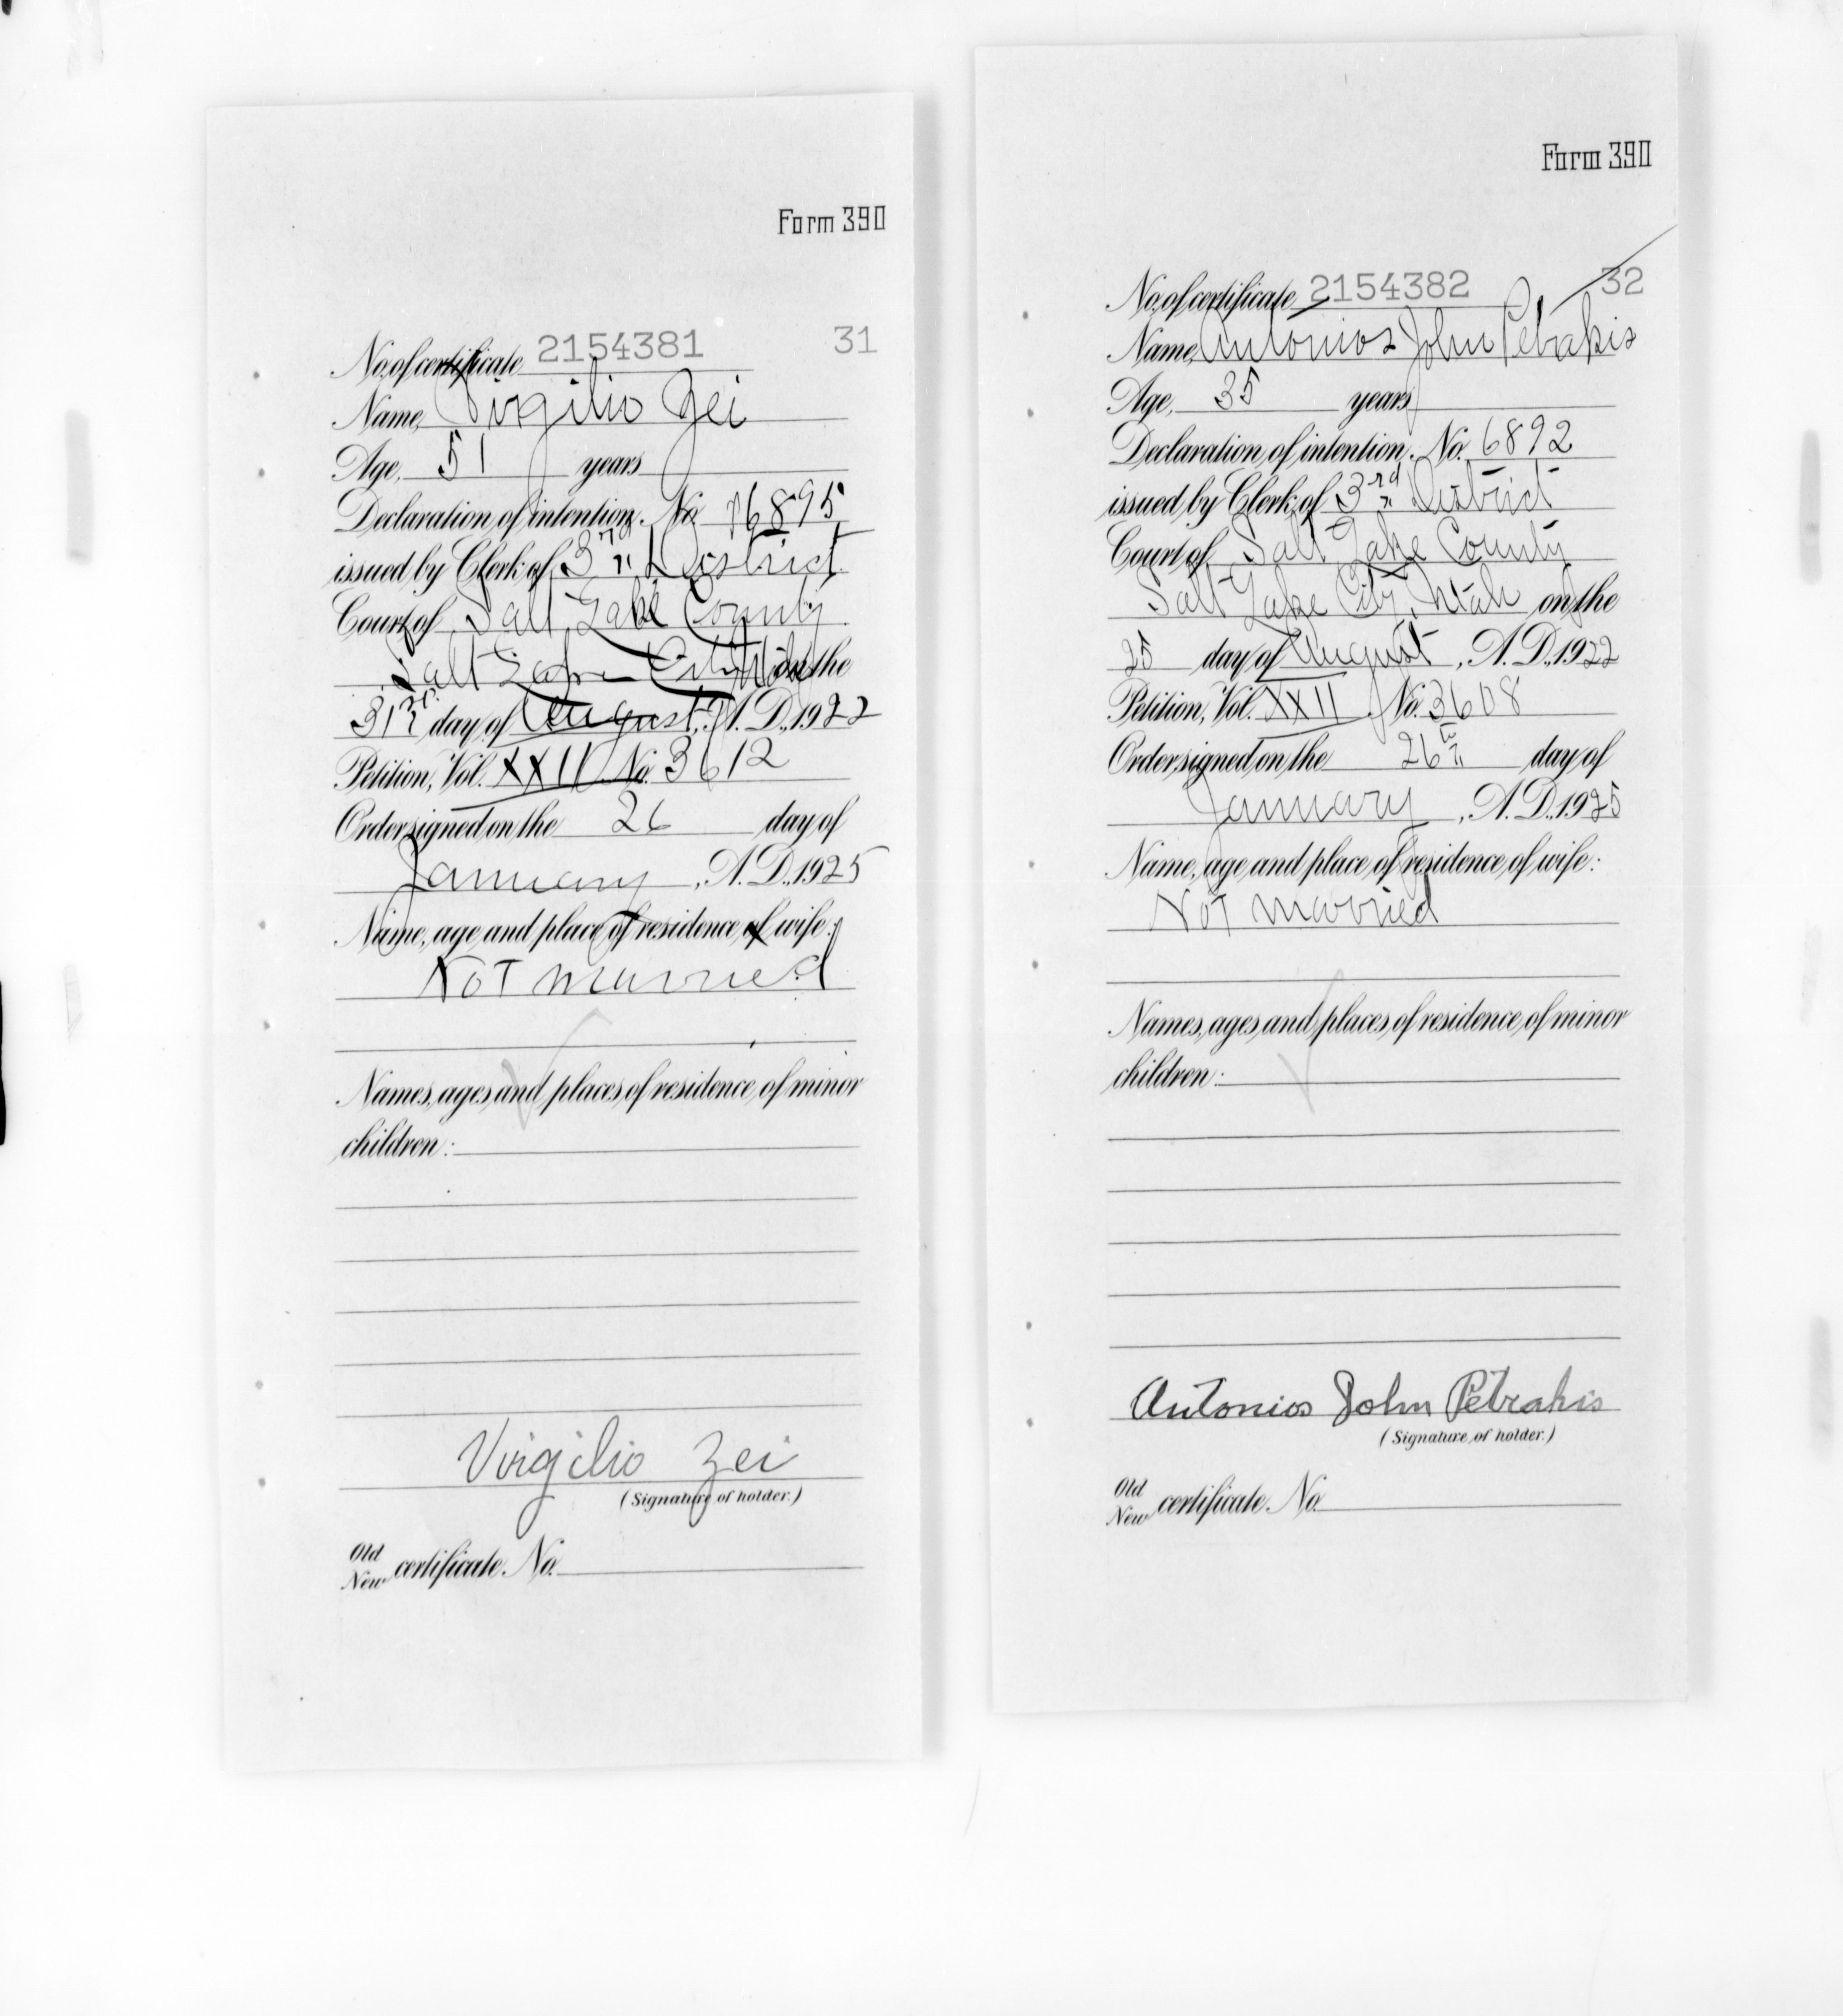 Form 390
No. of certificate 2154381 31
Name, Virgilio Zei
Age, 51 years
Declaration of intention, No. 6895
issued by Clerk of 3rd District
Court of Salt Lake County
Salt Lake City Utah on the
31st day of August, A.D., 1922
Petition, Vol. XXII No. 3612
Order signed on the 26 day of
January, A.D., 1925
Name, age and place of residence of wife:
Not married
Names, ages and places of residence of minor
children:
Virgilio Zei
(Signature of holder.)
Old
New certificate No.
Form 390
No. of certificate 2154382 32
Name, Antonios John Petrakis
Age, 35 years
Declaration of intention, No. 6892
issued by Clerk of 3rd District
Court of Salt Lake County
Salt Lake City, Utah on the
25 day of August, A.D., 1922
Petition, Vol. XXII No. 3608
Order signed on the 26th day of
January, A.D., 1925
Name, age and place of residence of wife:
Not married
Names, ages and places of residence of minor
children:
Antonios John Petrakis
(Signature of holder.)
Old
New certificate No.